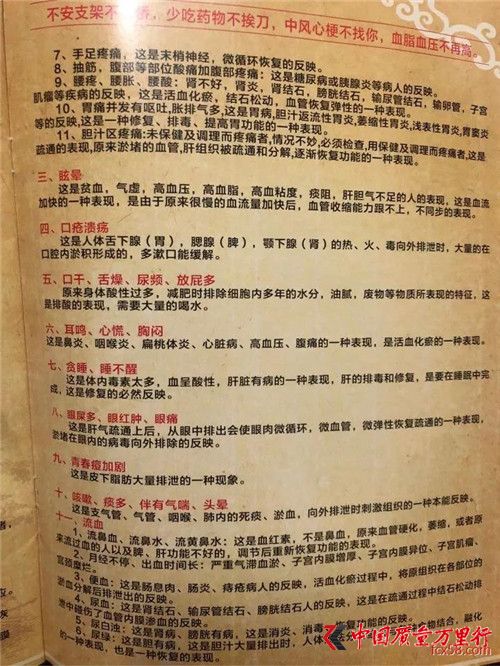 不安支架不搭桥，少吃药物不挨刀，中风心梗不找你，血脂血压不再高。
7、手足疼痛，这是末梢神经，微循环恢复的反映。
8、抽筋，腹部等部位酸痛加腹部疼痛：这是糖尿病或胰腺炎等病人的反映。
9、腰疼、腰胀、腰酸：肾不好，肾炎，肾结石，膀胱结石，输尿管结石，输卵管，子宫
肌瘤等疾病的反映，这是活血化瘀，结石松动，血管恢复弹性的一种表现。
10、胃痛并发有呕吐,胀排气多,这是胃病,胆汁返流性胃炎,萎缩性胃炎,浅表性胃炎,胃窦炎
等的反映,这是一种修复、排毒、提高胃功能的一种表现。
11、胆汁区疼痛:未保健及调理而疼痛者,情况不妙,必须检查,用保健及调理而疼痛者,这是
疏通的表现,原来淤堵的血管,肝组织被疏通和分解,逐渐恢复功能的一种表现。
三、眩晕
这是贫血，气虚，高血压，高血脂，高血粘度，痰阻，肝胆气不足的人的表现，这是血流
加快的一种表现，是由于原来很慢的血流量加快后，血管收缩能力跟不上，不同步的表现。
四、口疮溃疡
这是人体舌下腺（胃），腮腺（脾），颚下腺（肾）的热、火、毒向外排泄时，大量的在
口腔内淤积形成的，多漱口能缓解。
五、口干、舌燥、尿频、放屁多
原来身体酸性过多，减肥时排除细胞内多年的水分，油腻，废物等物质所表现的特征，这
是排酸的表现，需要大量的喝水。
六、耳鸣、心慌、胸闷
这是鼻炎、咽喉炎、扁桃体炎、心脏病、高血压、腹痛的一种表现，是活血化瘀的一种表现。
七、贪睡、睡不醒
这是体内毒素太多，血呈酸性，肝脏有病的一种表现，肝的排毒和修复，是要在睡眠中完
成，这是修复的必然反映。
八、眼屎多、眼红肿、眼痛
这是肝气疏通上后，从眼中排出会使眼肉微循环，微血管，微弹性恢复疏通的一种表现，
淤堵在眼内的病毒向外排除的反映。
九、青春痘加剧
这是皮下脂肪大量排泄的一种现象。
十、咳嗽、痰多、伴有气喘、头晕
这是支气管、气管、咽喉、肺内的死痰、淤血，向外排泄时刺激组织的一种本能反映。
十一、流血
1、流鼻血、流鼻水、流黄鼻水：这是血红素，不是鼻血，原来血管硬化，萎缩，或者原
来流过血的人以及脾、肝功能不好的，调节后重新恢复功能的表现。
2、月经不停、出血时间长：严重气滞血淤、子宫内膜增厚、子宫内膜异位、子宫肌瘤、
宫颈糜烂。
3、便血：这是肠息肉、肠炎、痔疮病人的反映，活血化瘀过程中，将原组织在各部位的
淤血分解后排泄出的反映。
4、尿血：这是肾结石、输尿管结石、膀胱结石人的反映，这是在疏通过程中结石松动排
泄中碰伤了血管内膜渗血的反映。
5、尿白浊：这是肾病，膀胱有病，这是消炎、消毒
6、尿绿：这是胆有病，这是胆汁大量排出时，融化
的一种表现，也是一种恢复的表现。
中国质量万里行
fcx58.com